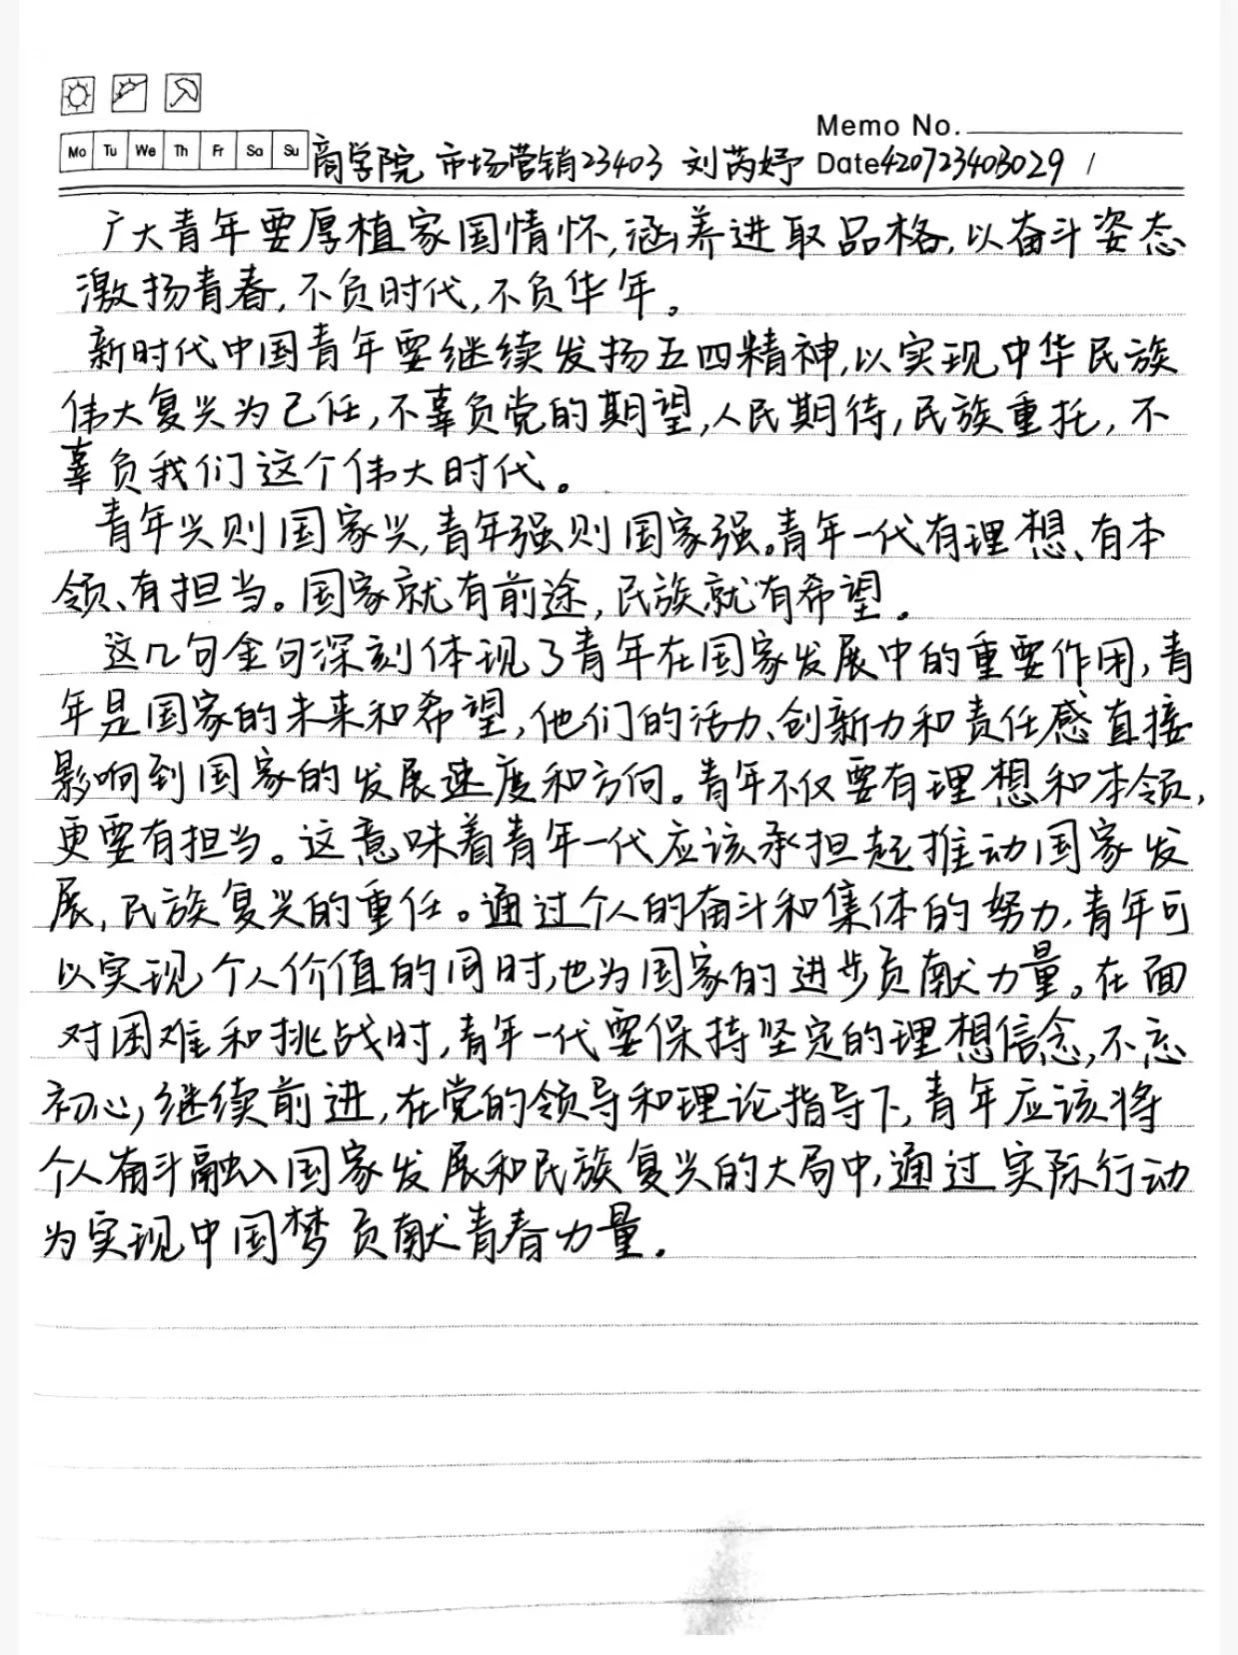 Memo No.
Mo Tu We Th Fr Sa Su 商学院 市场营销23403 刘芮妤 Date420723403029 /
广大青年要厚植家国情怀,涵养进取品格,以奋斗姿态
激扬青春,不负时代,不负华年。
新时代中国青年要继续发扬五四精神,以实现中华民族
伟大复兴为己任,不辜负党的期望,人民期待,民族重托,不
辜负我们这个伟大时代。
青年兴则国家兴,青年强则国家强。青年一代有理想、有本
领、有担当。国家就有前途,民族就有希望。
这几句金句深刻体现了青年在国家发展中的重要作用,青
年是国家的未来和希望,他们的活力、创新力和责任感直接
影响到国家的发展速度和方向。青年不仅要有理想和本领,
更要有担当。这意味着青年一代应该承担起推动国家发
展,民族复兴的重任。通过个人的奋斗和集体的努力,青年可
以实现个人价值的同时,也为国家的进步贡献力量。在面
对困难和挑战时,青年一代要保持坚定的理想信念,不忘
初心,继续前进,在党的领导和理论指导下,青年应该将
个人奋斗融入国家发展和民族复兴的大局中,通过实际行动
为实现中国梦贡献青春力量.